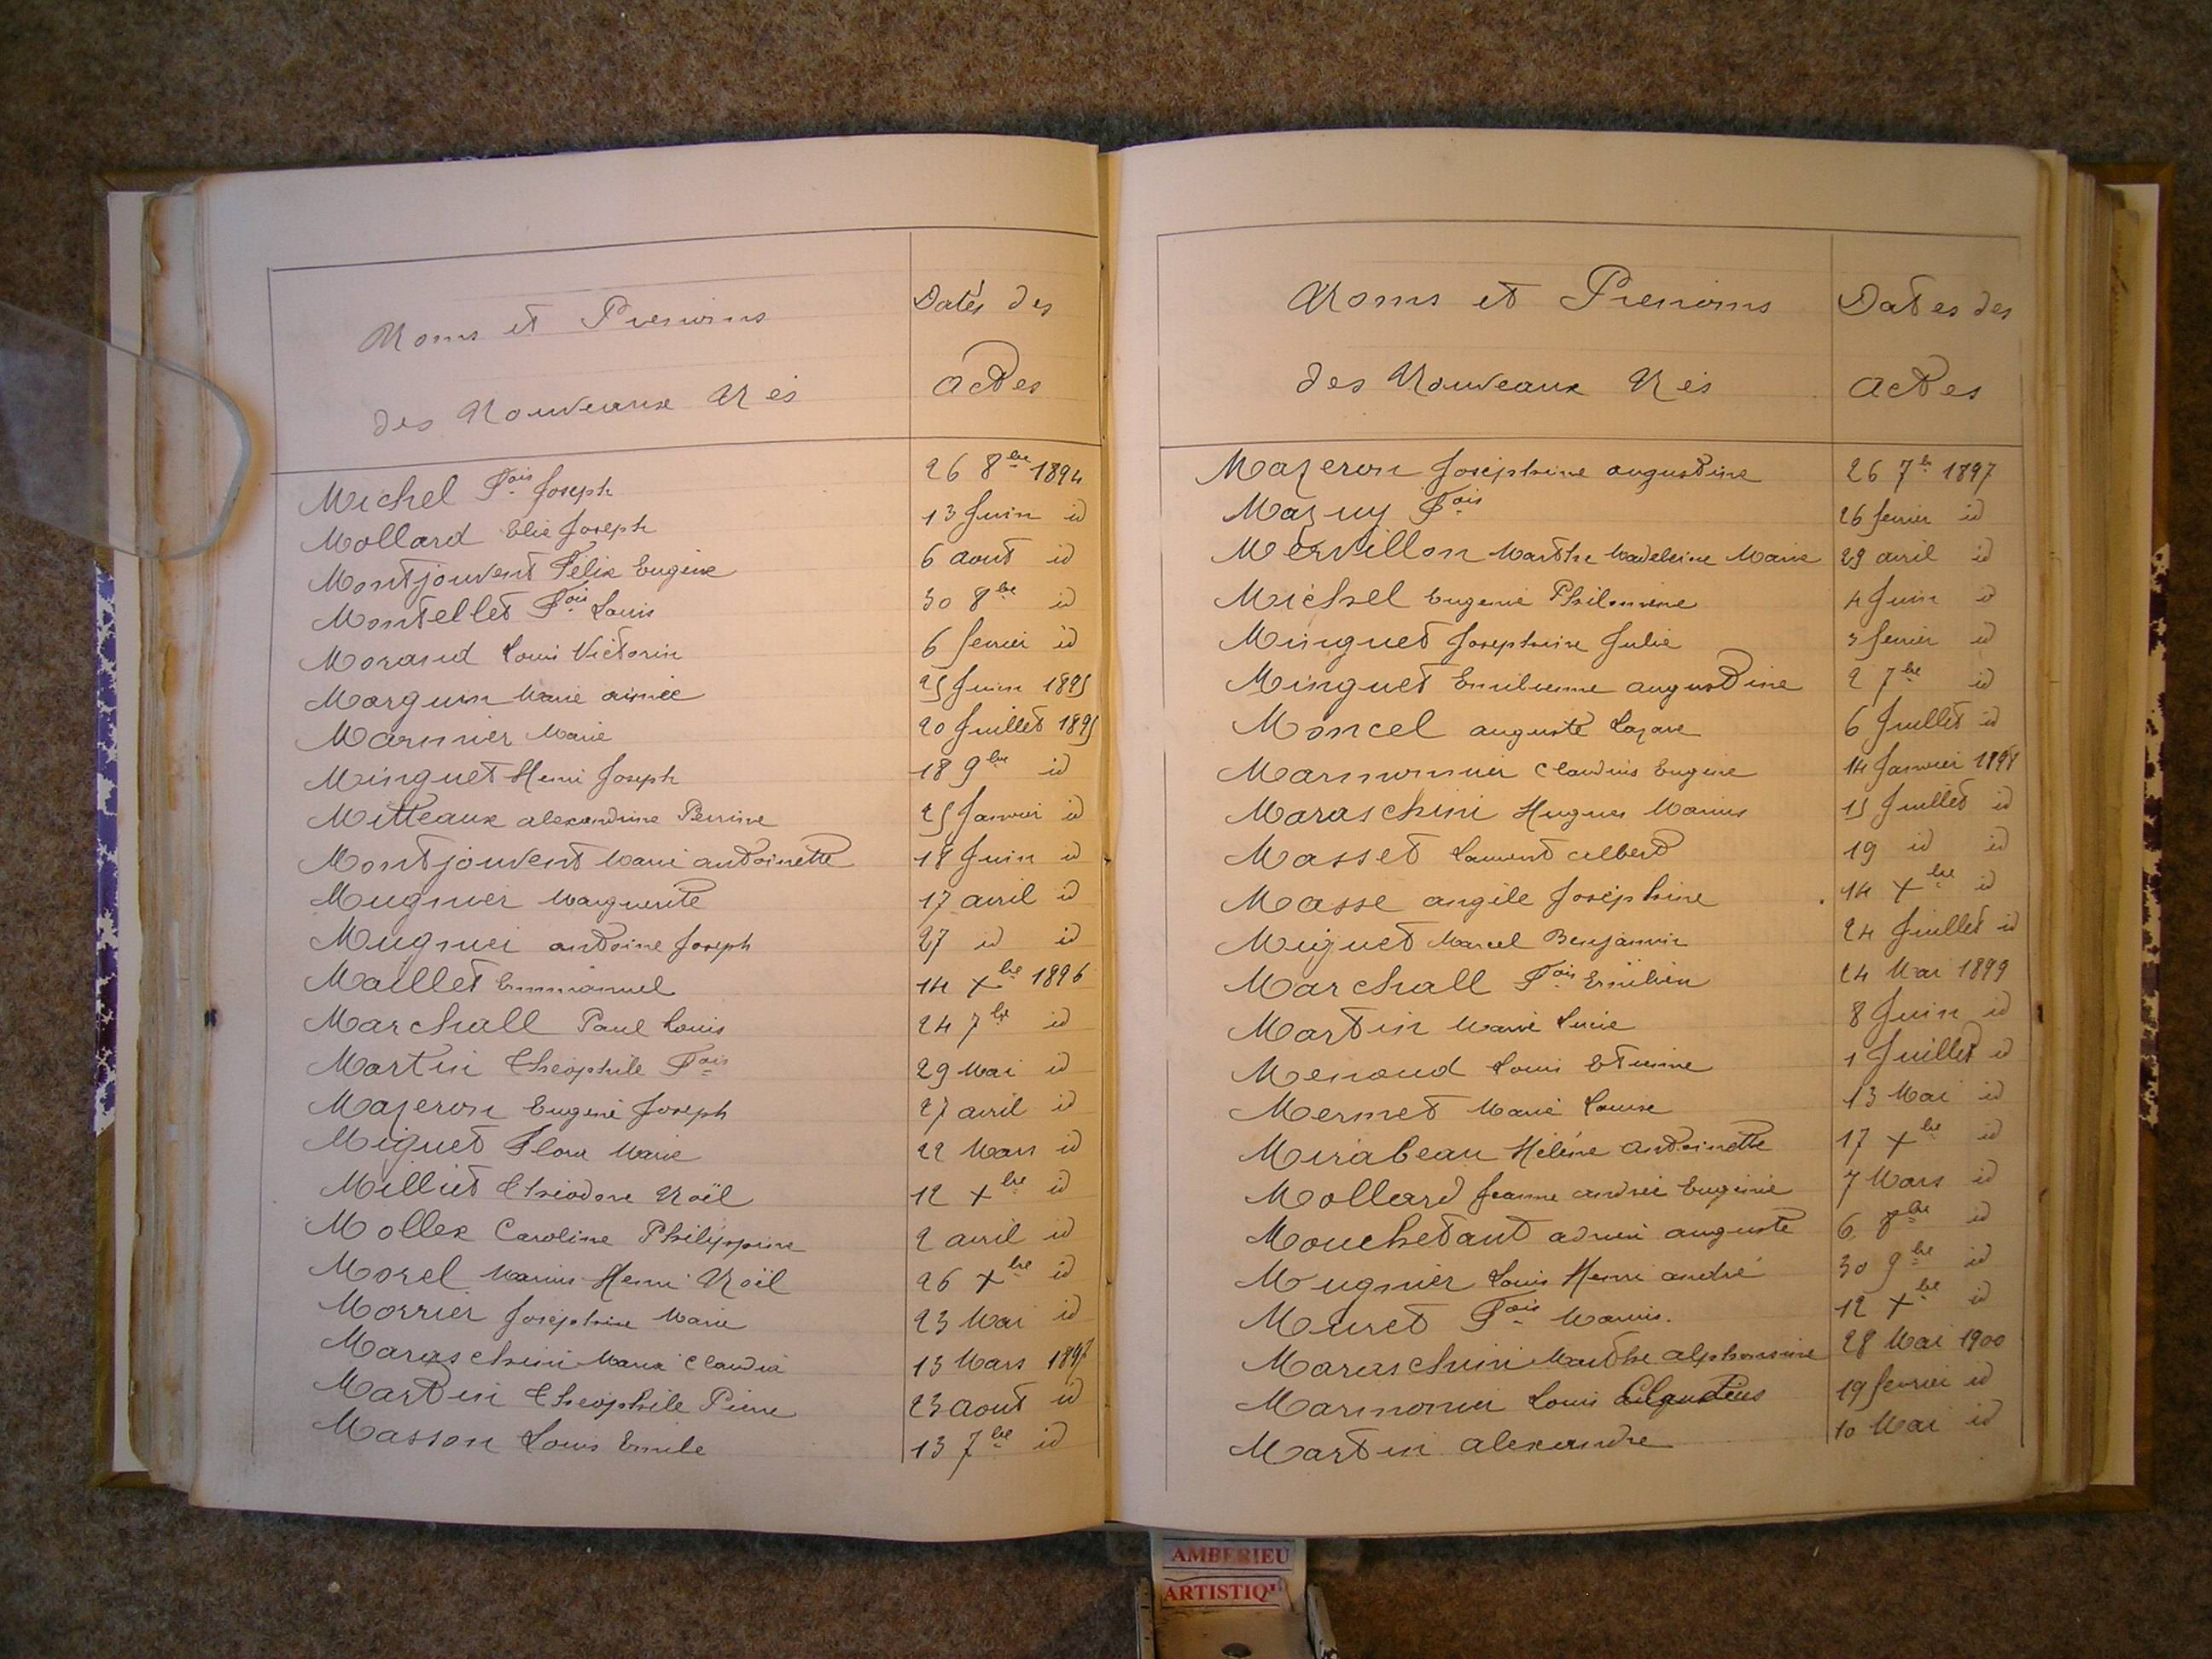 Noms et Prenoms
des Nouveaux Nés
Dates des
actes
Michel Fois Joseph 26 8bre 1894
Mollard Elie Joseph 13 Juin id
Montjouvent Félix Eugène 6 aout id
Montellet Fois Louis 30 8bre id
Morand Louis Victorin 6 fevrier id
Morguin Marie aimée 25 Juin 1895
Marmier Marie 20 Juillet 1895
Minguet Henri Joseph 18 9bre id
Mitteaux alexandrine Perrine 25 Janvier id
Montjouvent Marie antoinette 18 Juin id
Mugnier Marguerite 17 avril id
Mugnier antoine Joseph 27 id id
Maillet Emmanuel 14 Xbre 1896
Marchall Paul Louis 24 7bre id
Martin Théophile Fois 29 Mai id
Mazeron Eugène Joseph 27 avril id
Miguet Flora Marie 22 Mars id
Milliet Théodore Noël 12 Xbre id
Mollex Caroline Philippine 2 avril id
Morel Marius Henri Noël 26 Xbre id
Morrier Joséphine Marie 23 Mai id
Maraschini Maria Claudia 13 Mars 1897
Martin Théophile Pierre 23 aout id
Masson Louis Emile 13 7bre id
Noms et Prenoms
des Nouveaux Nés
Dates des
actes
Mazeron Joséphine augustine 26 7b 1897
Mazuy Fois 26 fevrier id
Mervillon Marthe Madeleine Marie 29 avril id
Michel Eugenie Philomène 4 Juin id
Minguet Josephine Julie 3 fevrier id
Minguet Emilienne augustine 2 7bre id
Moncel auguste Lazare 6 Juillet id
Marmonnier Claudius Eugène 14 Janvier 1898
Maraschini Hugues Marius 15 Juillet id
Masset Laurent albert 19 id id
Masse angèle Joséphine 14 Xbre id
Miguet Marcel Benjamin 24 Juillet id
Marchall Fois Emilien 24 Mai 1899
Martin Marie Lucie 8 Juin id
Menoud Louis Etienne 1 Juillet id
Mermet Marie Louise 13 Mai id
Mirabeau Hélène antoinette 17 Xbre id
Mollard Jeanne andrée Eugénie 7 Mars id
Mouchetant adrien auguste 6 8bre id
Mugnier Louis Henri andré 30 9bre id
Muret Fois Marius. 12 Xbre id
Maraschini Marthe alphonsine 28 Mai 1900
Marmonier Louis Claudius 19 fevrier id
Martin alexandre 10 Mai id
AMBERIEU
ARTISTIQ